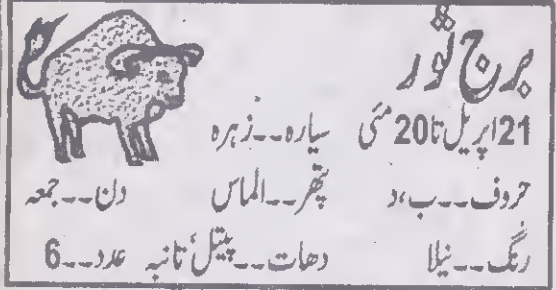 برج ثور
21 اپریل تا 20 مئی سیارہ۔۔زہرہ
حروف۔۔ب،د پتھر۔۔الماس دن۔۔جمعہ
رنگ۔۔نیلا دھات۔۔پیتل تانبہ عدد۔۔6